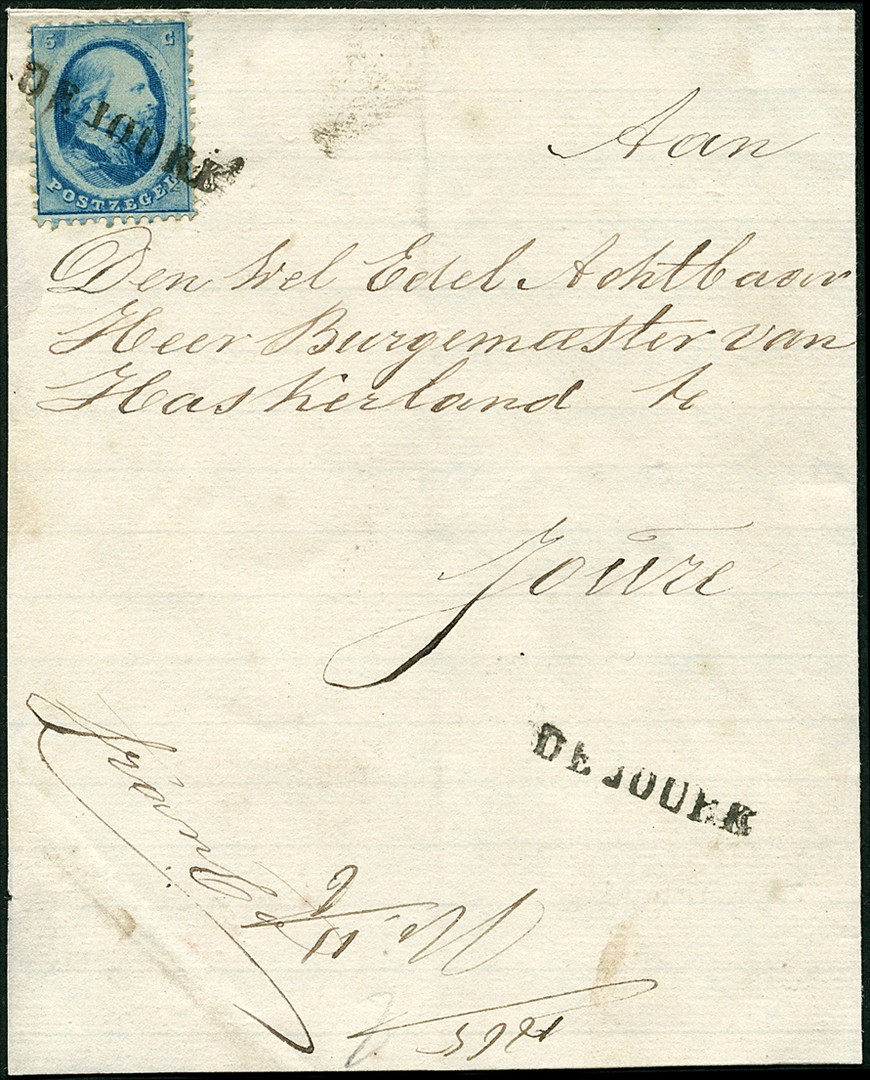 5 C
POSTZEGEL
DE JOURE
Aan
Den Wel Edel Achtbaar
Heer Burgemeester van
Haskerland te
Joure
DE JOURE
franco